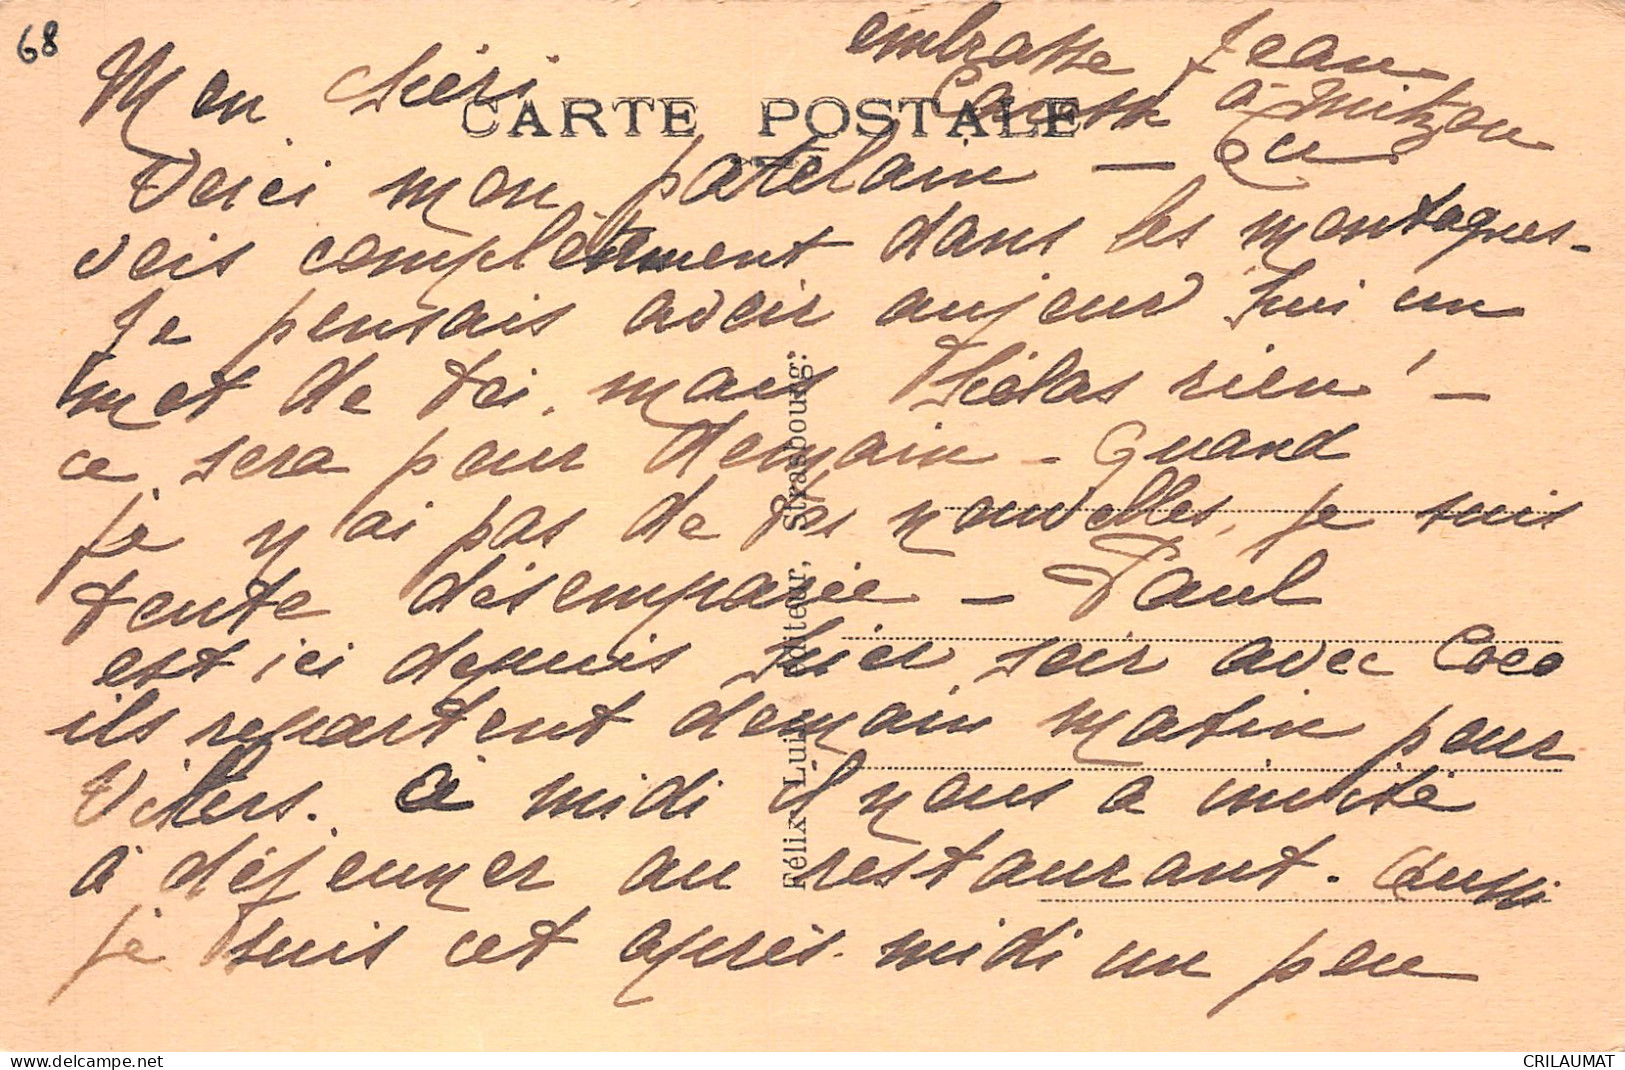 68
embrasse Jean
Caresse à Mitzou
Mon chéri
CARTE POSTALE
Voici mon patelain — Tu
vois complètement dans les montagnes -
Je pensais avoir aujourd'hui un
mot de toi, mais hélas rien ! -
ce sera pour demain - Quand
je n'ai pas de tes nouvelles, je suis
toute désemparée - Paul
est ici depuis hier soir avec Coco
ils repartent demain matin pour
Villers. Ce midi il nous a invité
à déjeuner au restaurant. Aussi
je suis cet après-midi un peu
Félix Luib, éditeur, Strasbourg:
CRILAUMAT
delcampe.net